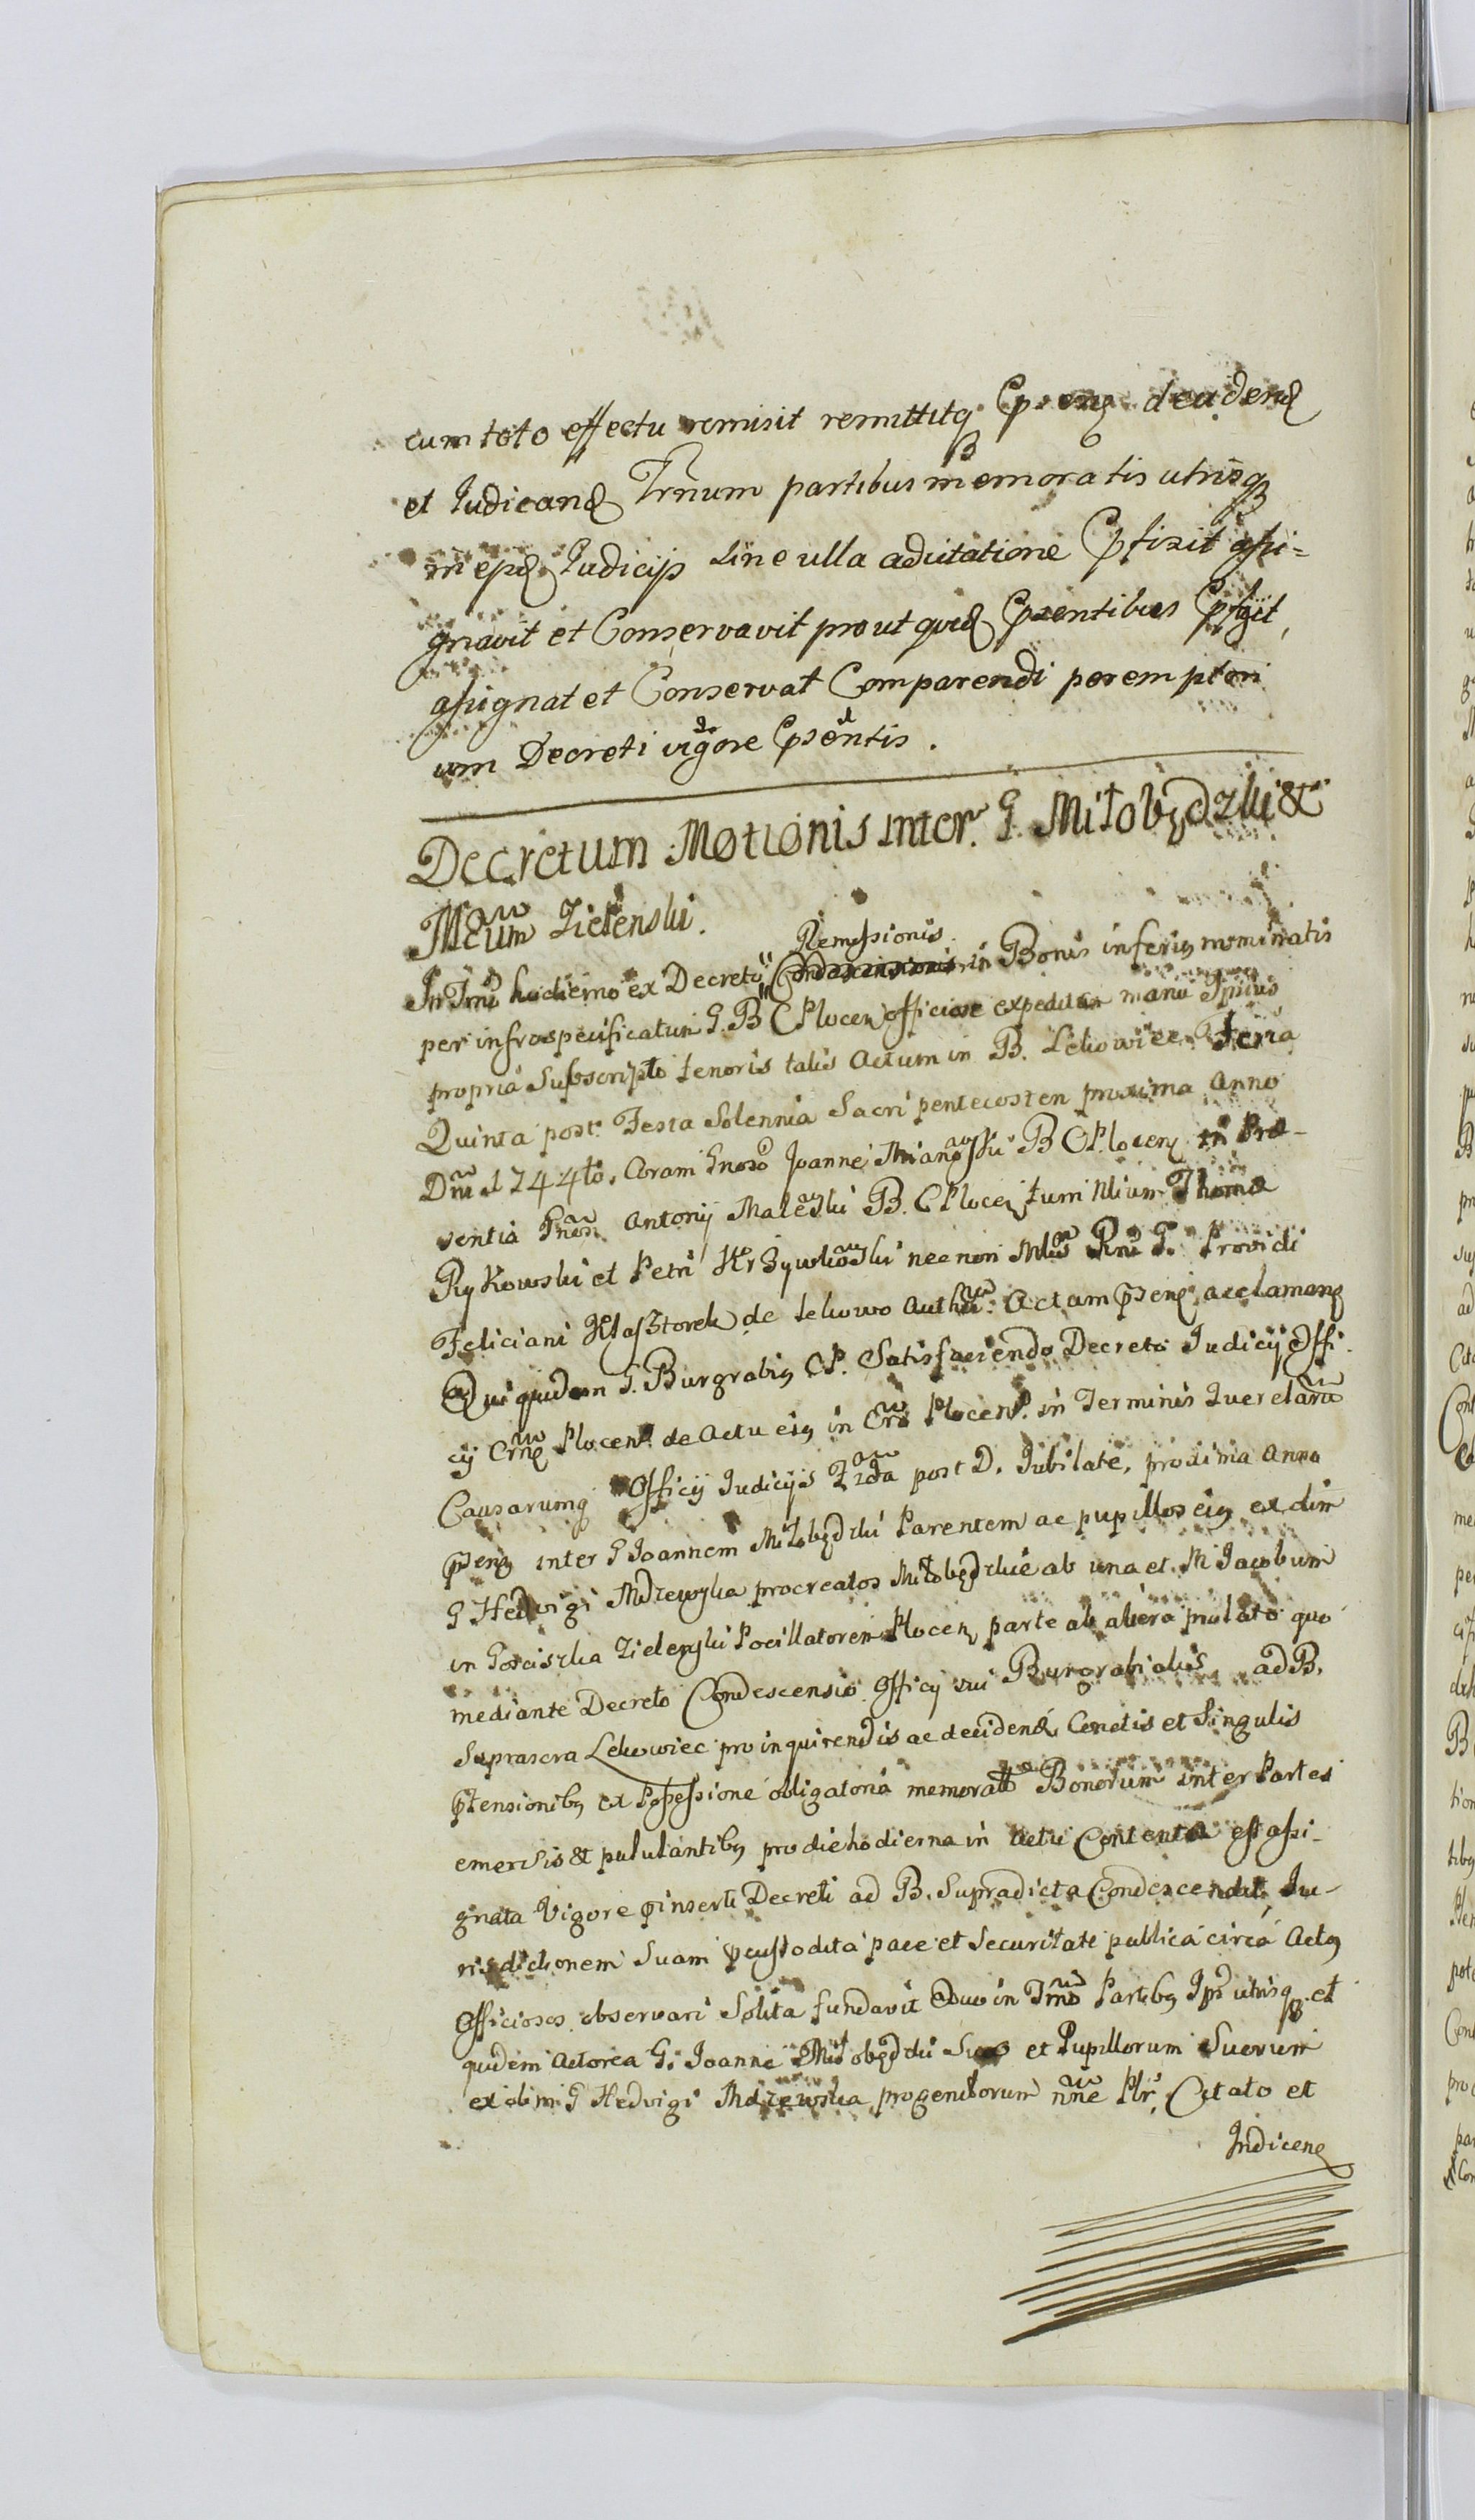 cum toto effectu remisit remittitq decidend
et Iudicand Trnum partibus memoratis utrisq
in ejsd Iudicijs sine ulla aducitatione Cpfixit assi=
gnavit et Conservavit prout quid Cpsentibus Cpfigit,
assignat et Conservat Comparendi peremptori
um Decreti vigore Cpsentis.
Decretum Motionis inter G. Miłobędzki &
Mcum Zielenski.
In Trno hodierno ex Decreto Remissionis in Bonis inferius nominatis
per infrospecificatum G. B C Plocen officiose expedita manu Ipsius
propria Subscripto tenoris talis Actum in B. Lekowiec Feria
Quinta post Festa Solennia Sacri pentecosten proxima Anno
Dni 1744to. Coram Gnoso Joanne B C Plocen in Prae-
sentia Gnor Antonij Maleski B. C Plocen tum Nlium Thoma
Rykowski et Petri Krzywkoski nec non Mlis Rni G. Providi
Feliciani Klasztorek de Lekowo Authu Actam psens acclamans
Qui quidem G. Burgrabius CP. Satisfaciendo Decreto Iudicij Offi-
cij Crns Plocens de Actu eius in Cro Plocens. in Terminis Querelaru
Causarumq Officij Iudicijs Fida post D. Jubilate, proxima Anno
psens inter G Joannem Miłobędzki Parentem ac pupillos eius ex olim
G Hedvigi Mdzewska procreatos Miłobędzkie ab una et M Jacobum
in Gosciszka Zielenski Pocillatorem Plocen parte ab altera prolato quo
mediante Decreto Condescensio Officij sui Burgrabialis ad B.
Suprascra Lekowiec pro inquirendis ac decidend Cunctis et Singulis
ptensionibus ex Possessione obligatoria memorat Bonorum inter Partes
emersis & pululantibus pro die hodierna in Actu Contenta est assi-
gnata Vigore pinserti Decreti ad B. Supradicta Condescendit Iu-
risdictionem Suam pcustodita pace et Securitate publica circa Actus
Officiosos observari Solita fundavit Quo in Trno Partibus Ipsis utrisq et
quidem Actorea G. Joanne Miłobędzki Suo et Pupillorum Suorum
ex olim G Hedvigi Mdzewska progenitorum nne Plr, Citato et
Indicene